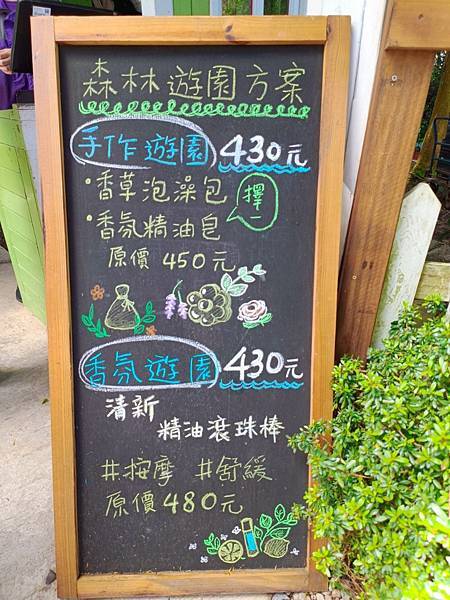 森林遊園方案
手作遊園 430元
•香草泡澡包
•香氛精油皂
擇一
原價 450元
香氛遊園 430元
清新
精油滾珠棒
#按摩 #舒緩
原價480元